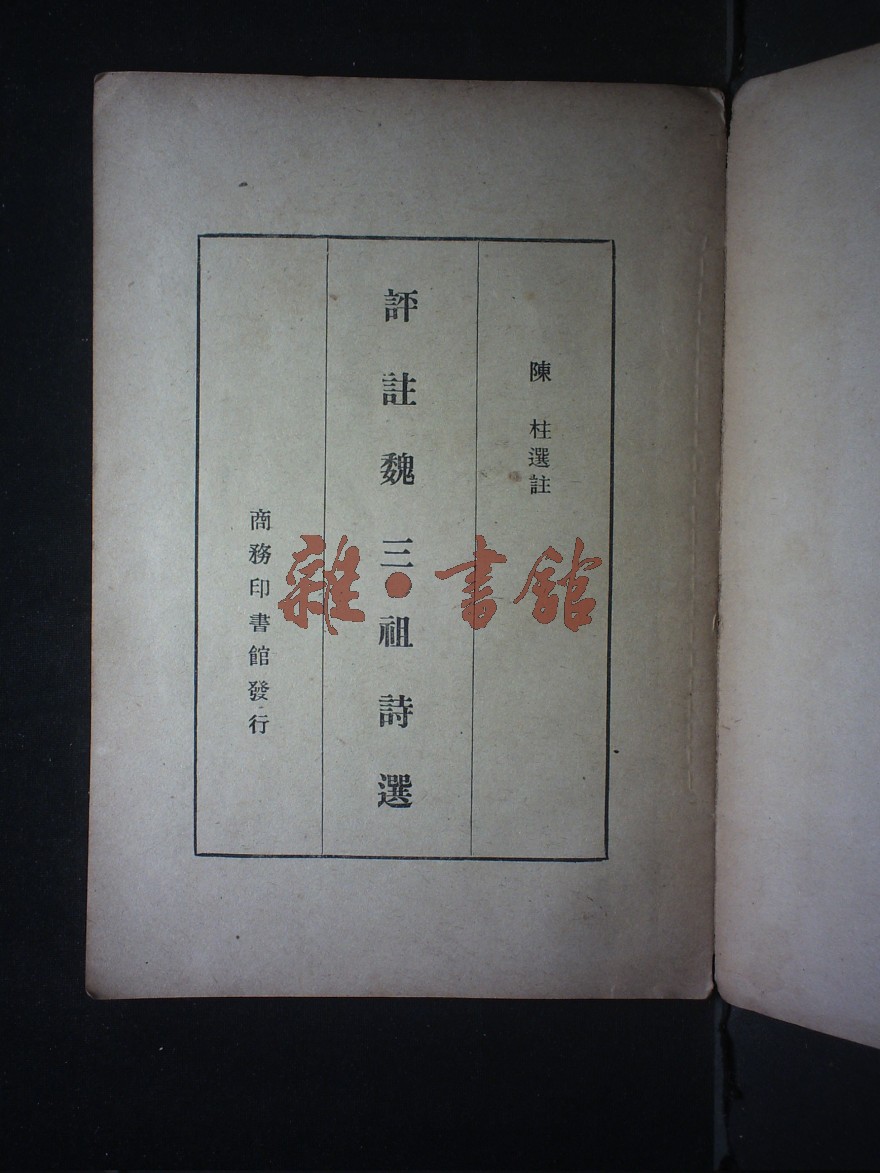 陳　柱選註
評註魏三祖詩選
商務印書館發行
雜·書館